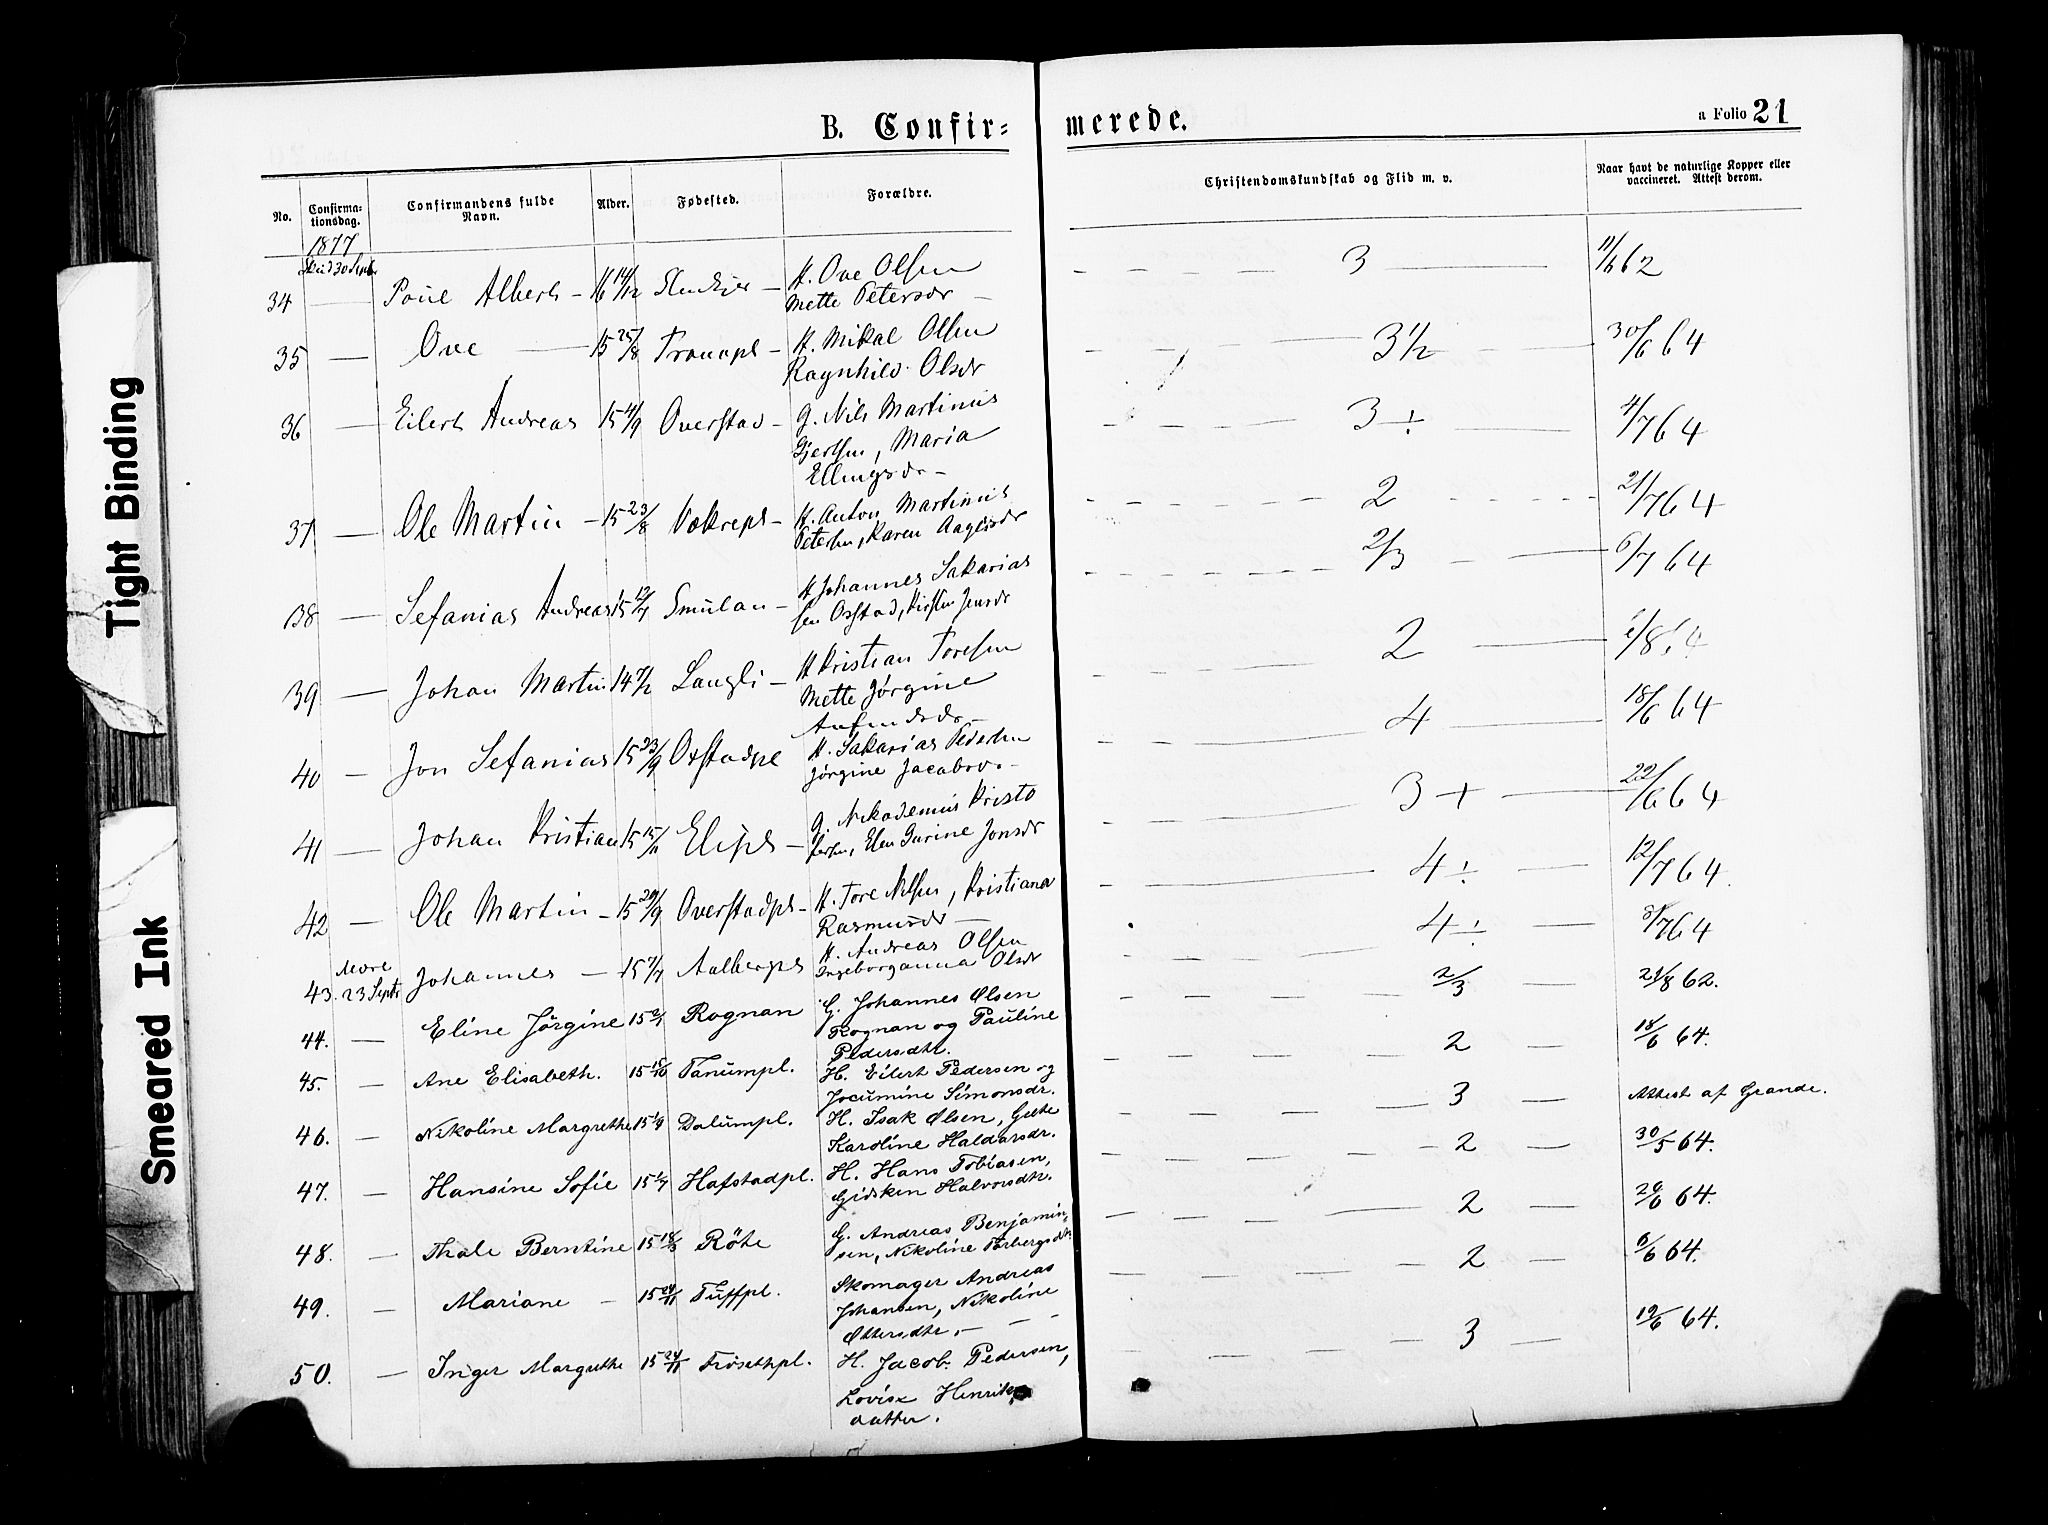 B. Confir=
merede.
a Folio 21
No.
Confirma=
tionsdag.
Confirmandens fulde
Navn.
Alder.
Fødested.
Forældre.
Christendomskundskab og Flid m. v.
Naar havt de naturlige Kopper eller
vaccineret. Attest derom.
1877
30 Sept.
34 — Poul Albert — 16 14/12 — H. Ove Olsen
Mette Petersdr —
3 — 11/6 62
35 — Ove — 15 25/8 — H. Mikal Olsen
Ragnhild Olsdr
3 1/2 — 30/6 64
36 — Eilert Andreas 15 4/9 Overstad — G. Nils Martinus
Gjertsen, Maria
Ellingsdr —
3 ÷ — 4/7 64
37 — Ole Martin — 15 23/8 Vækrepl — H. Anton Martinus
Petersen, Karen Aagesdr
2 - - - - 21/7 64
38 — Sefanias Andreas 15 12/7 Smulan — H Johannes Sakarias
sen Oxstad, Kirsten Jensdr
2/3 — 6/7 64
39 — Johan Martin 14 7/12 Langli — H Kristian Toresen
Mette Jørgine
Anfindsdr —
2
40 — Jon Sefanias 15 23/9 Oxstadpl H. Sakarias Pedersen
Jørgine Jacobsdr. —
4 — 18/6 64
41 — Johan Kristian 15 15/11 Elipl — G. Nikodemus Kristo
fersen, Elen Gurine Jonsdr
3 + — 22/6 64
42 — Ole Martin — 15 29/9 Overstadpl — H. Tore Nilsen, Kristiana
Rasmusdr —
4 ÷ 12/7 64.
Møre
43. 23 Septr Johannes — 15 7/7 Aalbergpl H. Andreas Olsen
Ingeborganna Olsdr
4 ÷ — 3/7 64
44. — Eline Jörgine 15 Rognan G. Johannes Olsen
Rognan og Pauline
Pedersdtr.
2/3 — 21/8 62.
45. — Ane Elisabeth. 15 15/10 Fanumpl. H. Eilert Pedersen og
Jocumine Simonsdr.
2 — 18/6 64.
46. — Nikoline Margrethe 15 1/9 Dalumpl. H. Isak Olsen, Gurte
Karoline Haldorsdr.
3 — Attest af Grande.
47. — Hansine Sofie 15 1/7 Hafstadpl. H. Hans Tobiasen,
Gidsken Halvorsdtr.
2 — 30/5 64.
48. — Thale Berntine 15 18/3 Röte G. Andreas Benjamin,
sen, Nikoline Torbergsdtr
2 — 20/6 64.
49. — Mariane — 15 29/11 Tuffpl. Skomager Andreas
Johansen, Nikoline
Ottersdtr. — — —
2 — 6/6 64.
50. — Inger Margrethe 15 24/11 Frösethpl. H. Jacob Pedersen,
Lovise Henriks
datter.
3 — 19/6 64.
Tight Binding
Smeared Ink